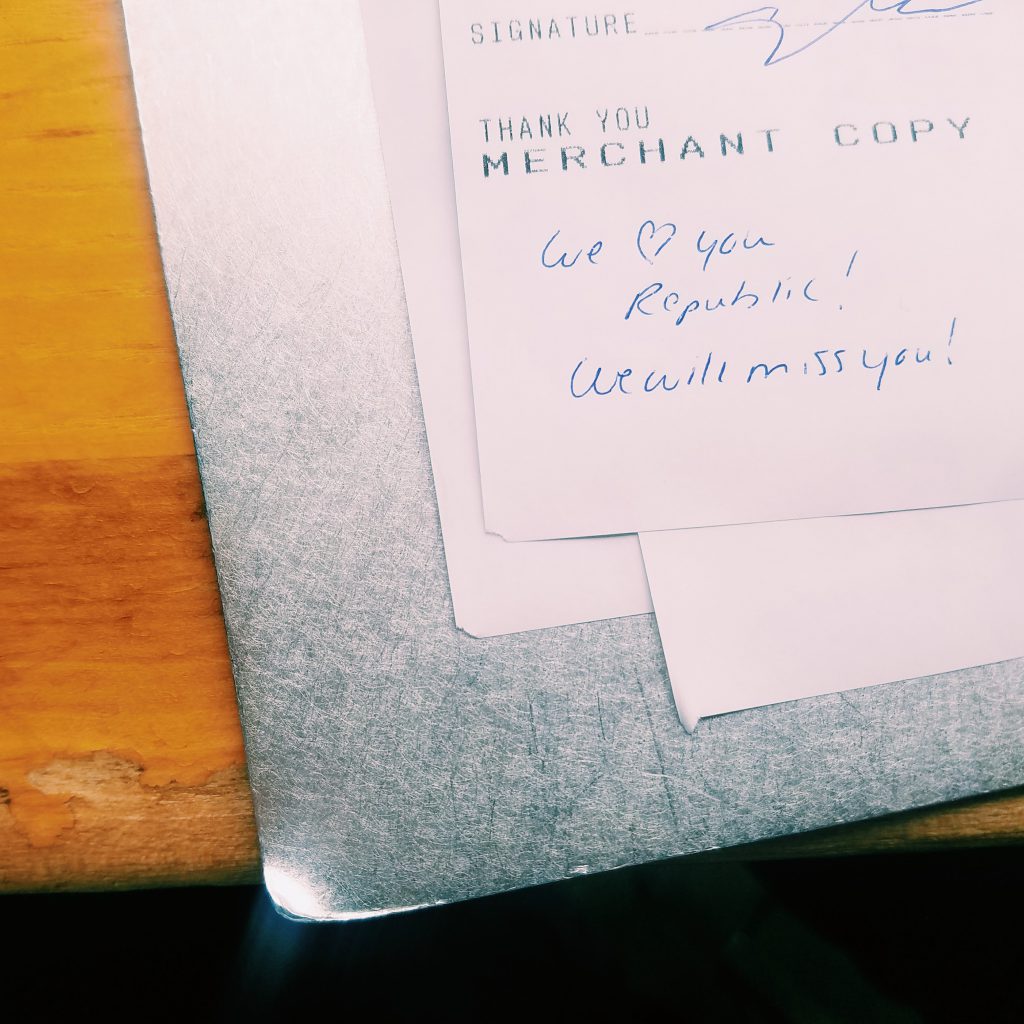 SIGNATURE
THANK YOU
MERCHANT COPY
We ♡ you
Republic!
We will miss you!